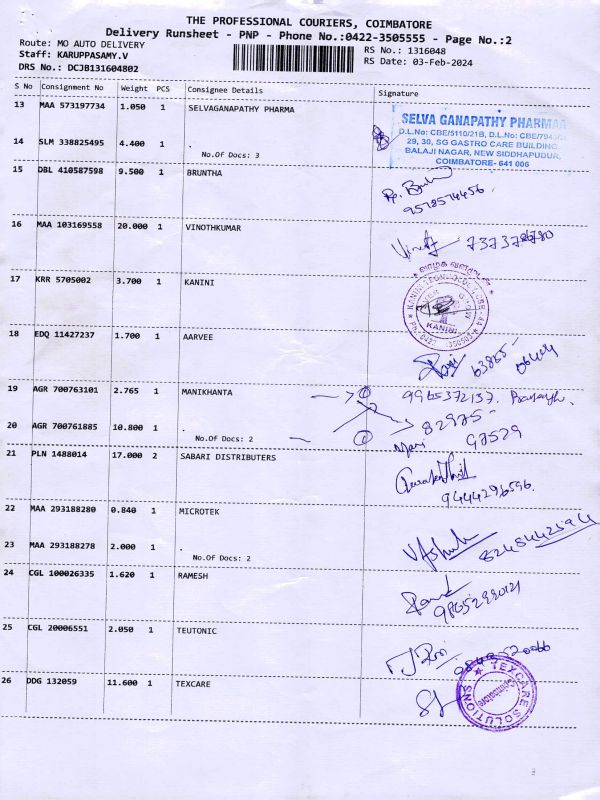 THE PROFESSIONAL COURIERS, COIMBATORE
Delivery Runsheet - PNP - Phone No.:0422-3505555 - Page No.:2
Route: MO AUTO DELIVERY
RS No.: 1316048
Staff: KARUPPASAMY.V
RS Date: 03-Feb-2024
DRS No.: DCJB131604802
S No Consignment No Weight PCS Consignee Details Signature
13 MAA 573197734 1.050 1 SELVAGANAPATHY PHARMA
SELVA GANAPATHY PHARMAA
D.L.No: CBE/5110/21B, D.L.No: CBE/
29, 30, SG GASTRO CARE BUILDING,
BALAJI NAGAR, NEW SIDDHAPUDUR,
COIMBATORE- 641 006
14 SLM 338825495 4.400 1 .
No.Of Docs: 3
15 DBL 410587598 9.500 1 BRUNTHA
9578574456
16 MAA 103169558 20.000 1 VINOTHKUMAR
17 KRR 5705002 3.700 1 KANINI
வாழ்க வளமுடன்
KANINI
18 EDQ 11427237 1.700 1 AARVEE
63855
19 AGR 700763101 2.765 1 MANIKHANTA
9965372137
20 AGR 700761885 10.800 1 .
No.Of Docs: 2
82975
97529
21 PLN 1488014 17.000 2 SABARI DISTRIBUTERS
9444296596
22 MAA 293188280 0.840 1 MICROTEK
8248442594
23 MAA 293188278 2.000 1 .
No.Of Docs: 2
24 CGL 100026335 1.620 1 RAMESH
25 CGL 20006551 2.050 1 TEUTONIC
26 DDG 132059 11.600 1 TEXCARE
TEXCARE SOLUTIONS
Coimbatore